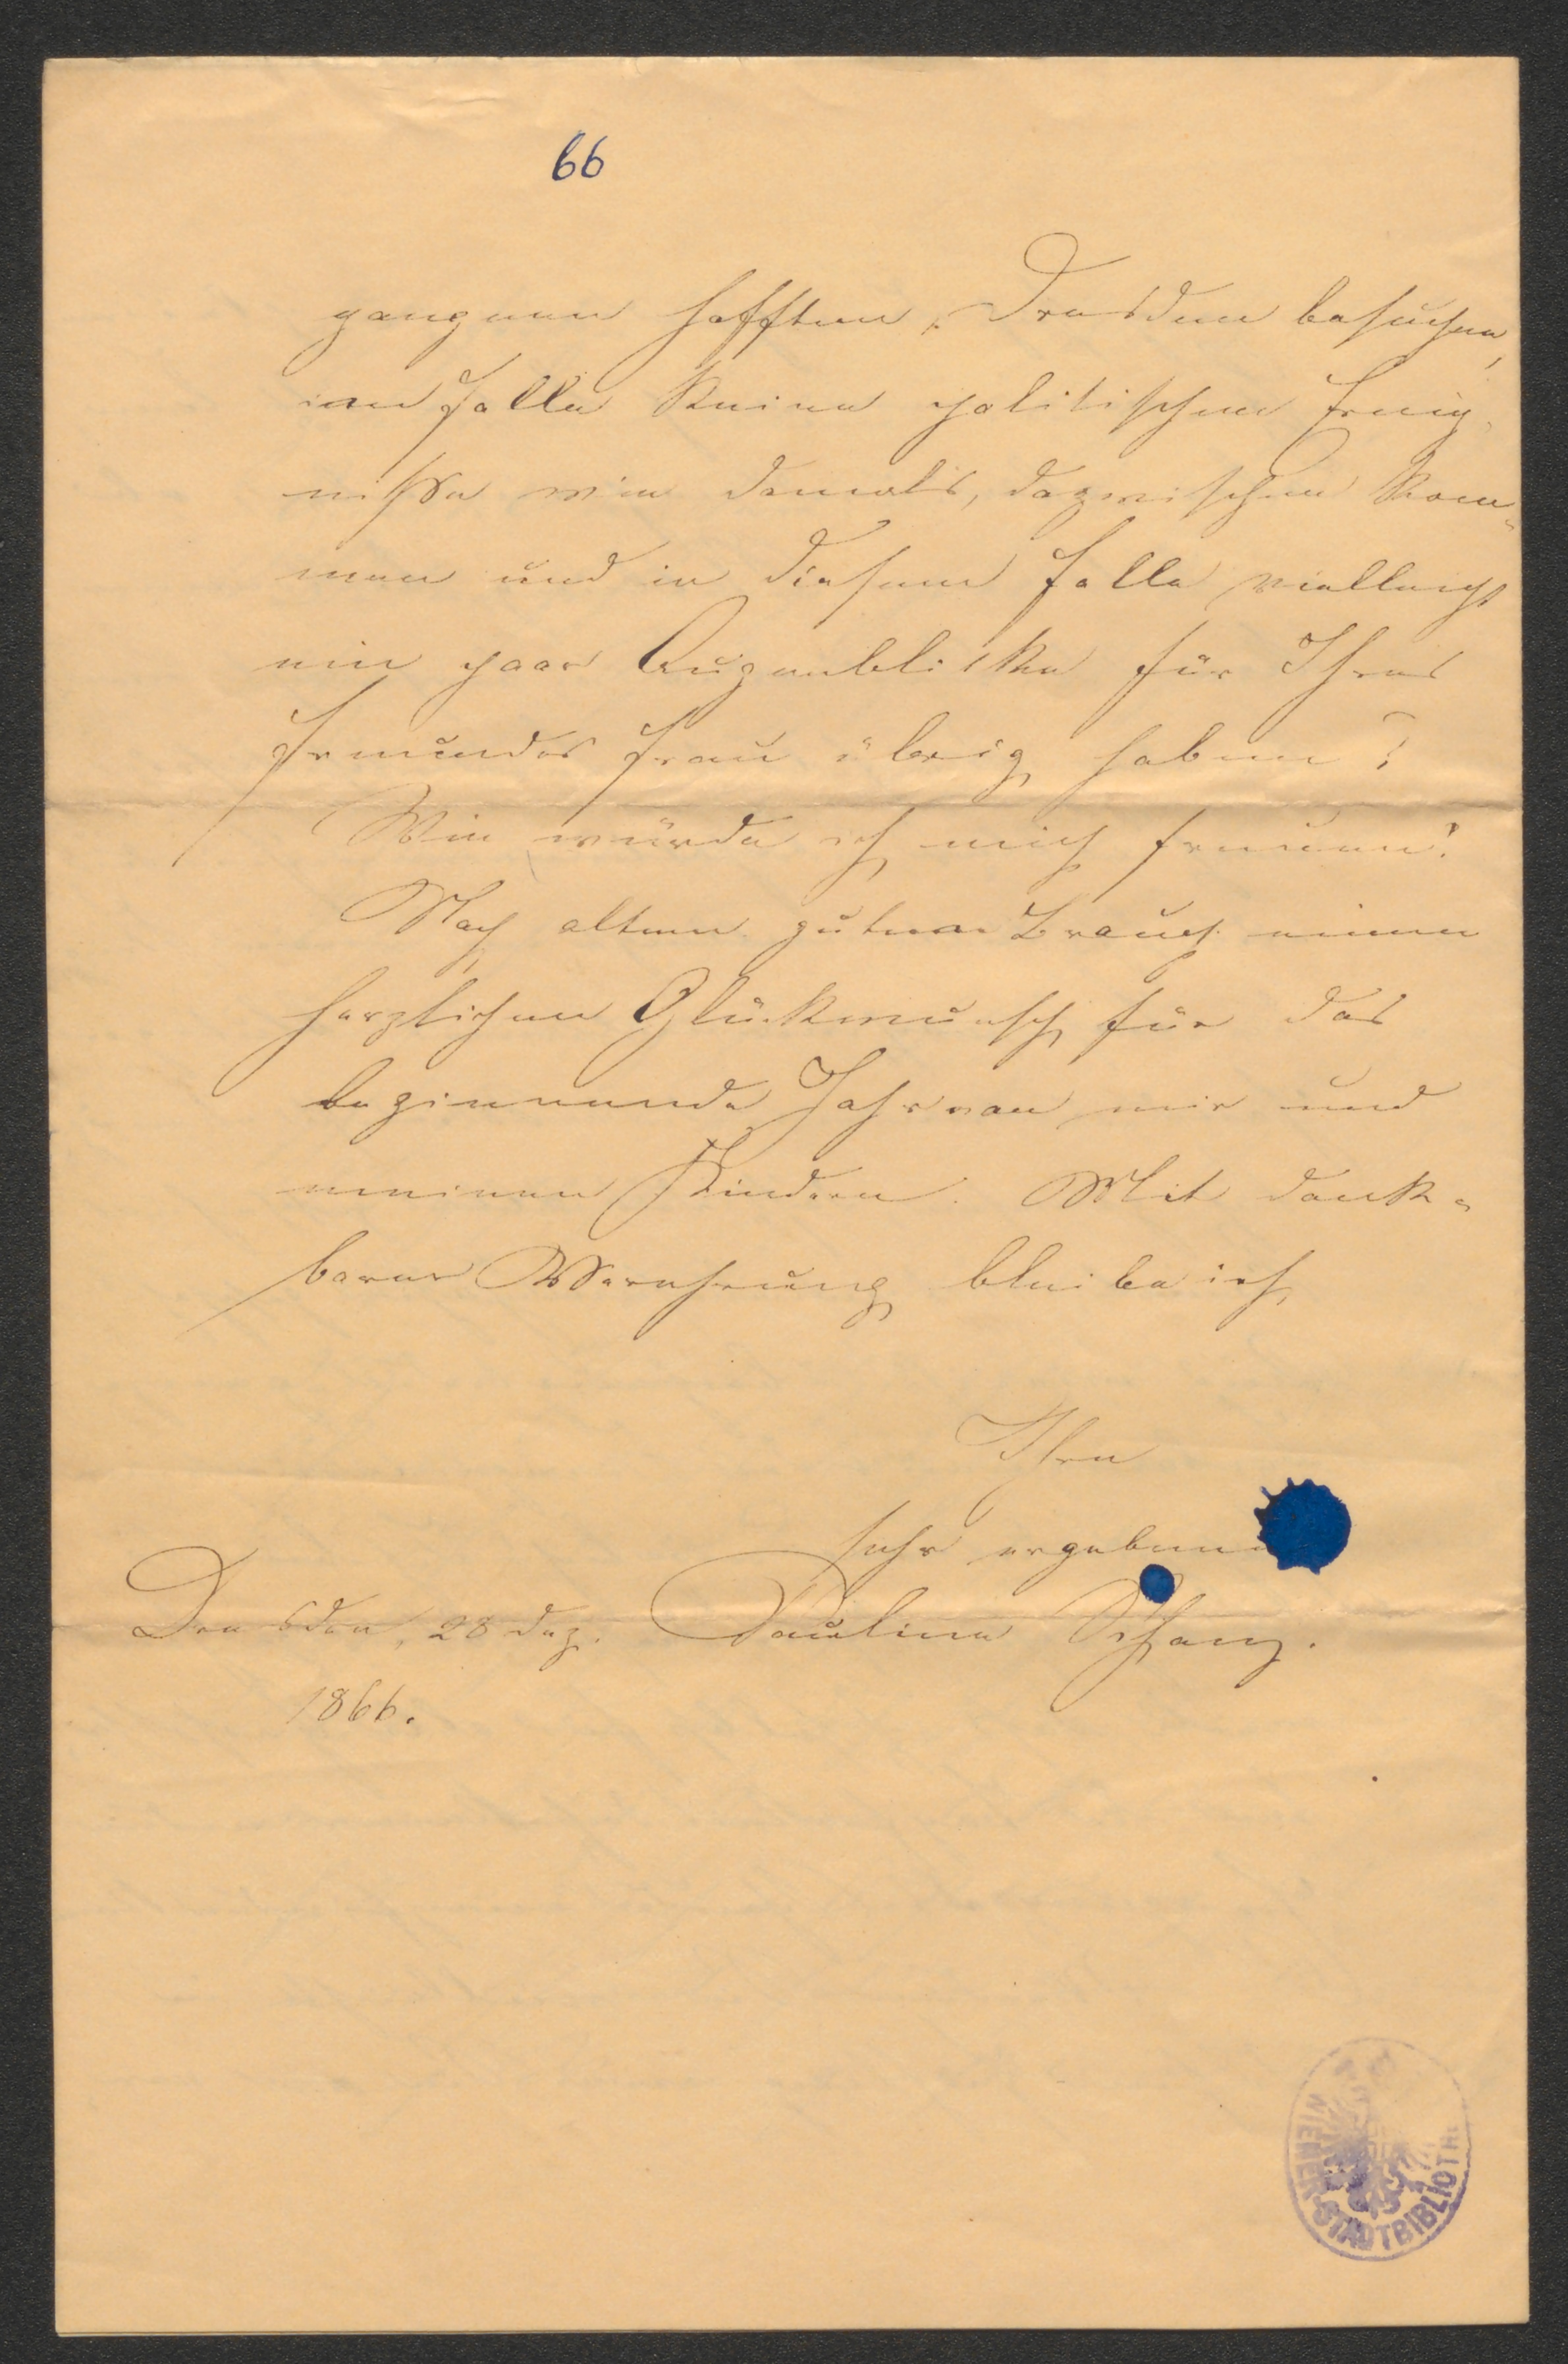 66
gangenen hofften, Dresden besuchen,
im Falle keine politischen Ereig-
nisse wie damals, dazwischen kom-
men und in diesem Falle vielleicht
ein paar Augenblicke für Ihres
Freundes Frau übrig haben?
Wie würde ich mich freuen!
Nach altem guten Brauch einen
herzlichen Glückwunsch für das
beginnende Jahr von mir und
meinen Kindern. Mit dank-
barer Verehrung bleibe ich
Ihre
sehr ergebene
Dresden, 28 Dez. Pauline Schanz.
1866.
WIENER STADTBIBLIOTHEK